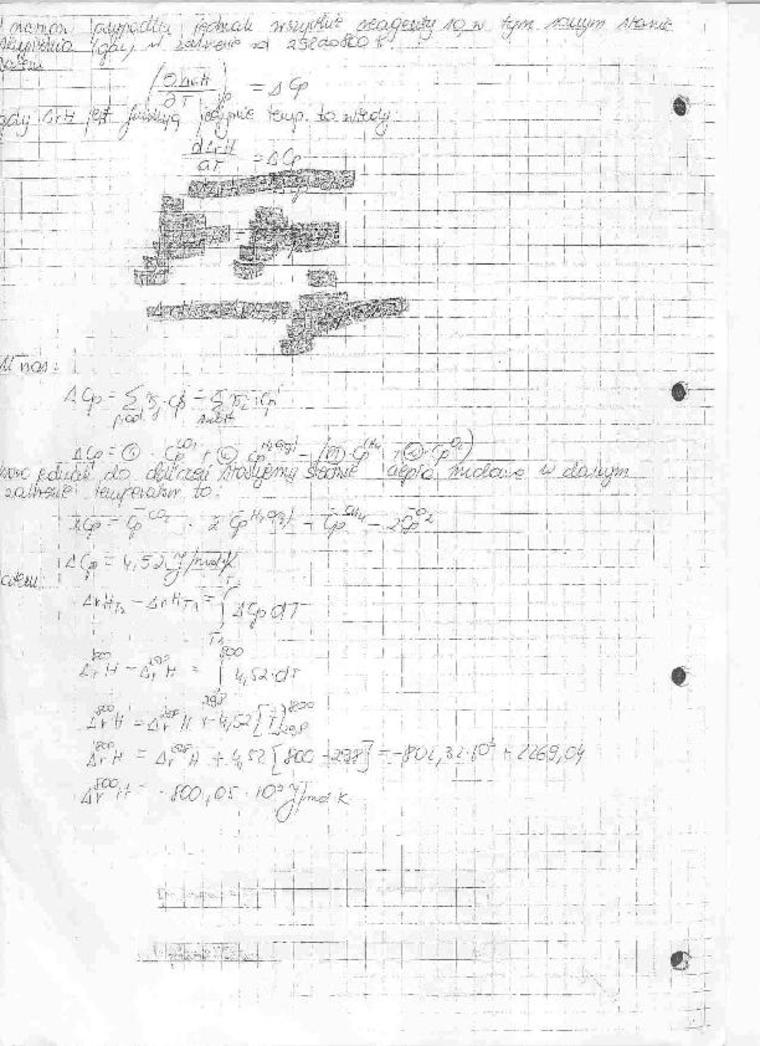 naszym przypadku jednak wszystkie reagenty są w tym samym stanie
skupienia (gaz) w zakresie od 298 do 800 K.
Zatem
(∂ΔrH/∂T)p = ΔCp
gdy ΔrH jest funkcją jedynie temp. to wtedy
dΔrH/dT = ΔCp
U nas:
ΔCp = Σ prod νj · Cp − Σ subst νi · Cp
ΔCp = ① · Cp^CO2 + ② Cp^H2O(g) − (① Cp^CH4 + ② · Cp^O2)
jednak do obliczeń stosujemy średnie ciepła molowe w danym
zakresie temperatur to:
ΔCp = Cp^CO2 · 2 Cp^H2O(g) − Cp^CH4 − 2Cp^O2
ΔCp = 4,52 J/mol K
Zatem:
ΔrH_T2 − ΔrH_T1 = ∫ T1 T2 ΔCp dT
Δr^800 H − Δr^298 H = ∫ 298 800 4,52 · dT
Δr^800 H = Δr^298 H + 4,52 [T] 298 800
Δr^800 H = Δr^298 H + 4,52 [800 − 298] = −802,32·10³ + 2269,04
Δr^800 H = −800,05 · 10³ J/mol K